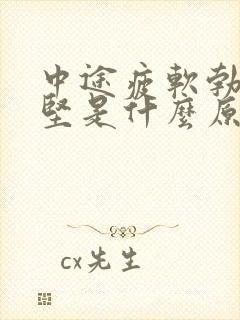 中途疲軟勃
堅是什麼原
cx先生